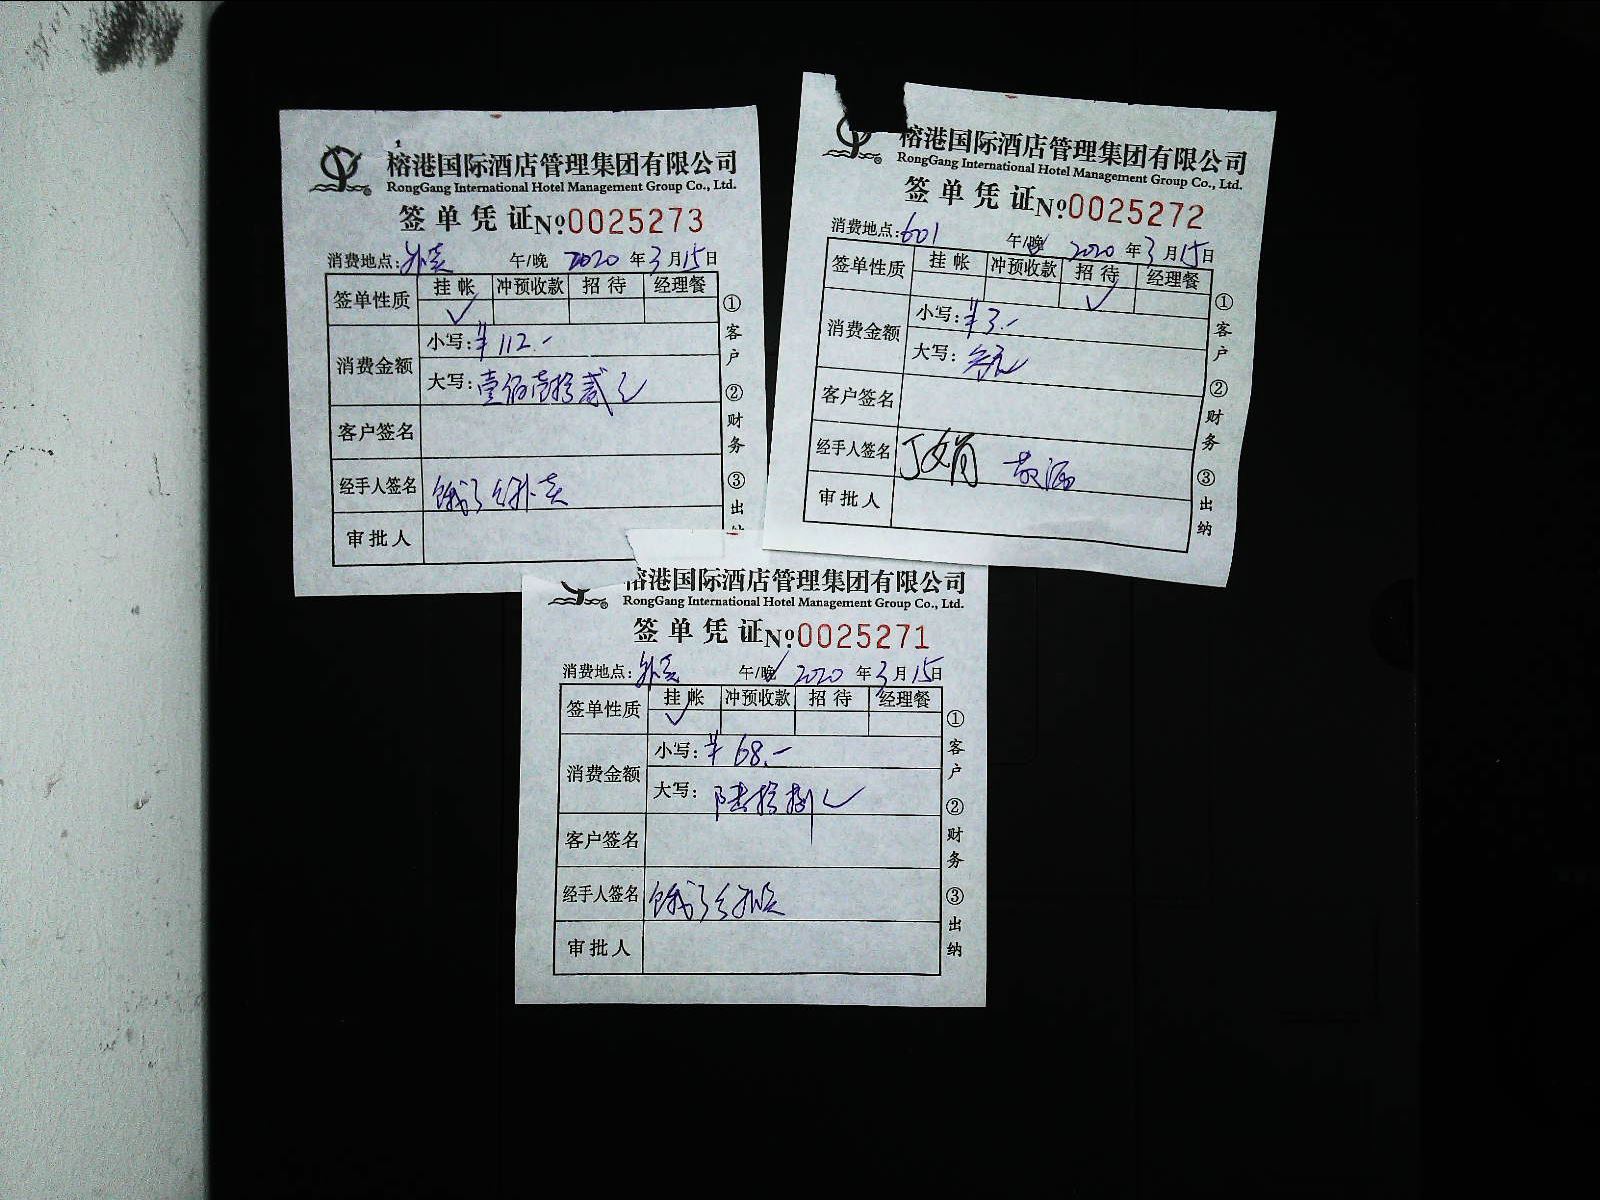 榕港国际酒店管理集团有限公司
RongGang International Hotel Management Group Co., Ltd.
签单凭证 No 0025273
消费地点: 外卖 午/晚 2020年3月15日
签单性质 挂帐 冲预收款 招待 经理餐
✓
消费金额 小写: ¥112.-
大写: 壹佰壹拾贰元
客户签名
经手人签名 饿了么外卖
审批人
①客户 ②财务 ③出
榕港国际酒店管理集团有限公司
RongGang International Hotel Management Group Co., Ltd.
签单凭证 No 0025272
消费地点: 601 午/晚 2020年3月15日
签单性质 挂帐 冲预收款 招待 经理餐
✓
消费金额 小写: ¥3.-
大写: 叁元
客户签名
经手人签名
审批人
①客户 ②财务 ③出纳
榕港国际酒店管理集团有限公司
RongGang International Hotel Management Group Co., Ltd.
签单凭证 No 0025271
消费地点: 外卖 午/晚 2020年3月15日
签单性质 挂帐 冲预收款 招待 经理餐
✓
消费金额 小写: ¥68.-
大写: 陆拾捌元
客户签名
经手人签名 饿了么外卖
审批人
①客户 ②财务 ③出纳